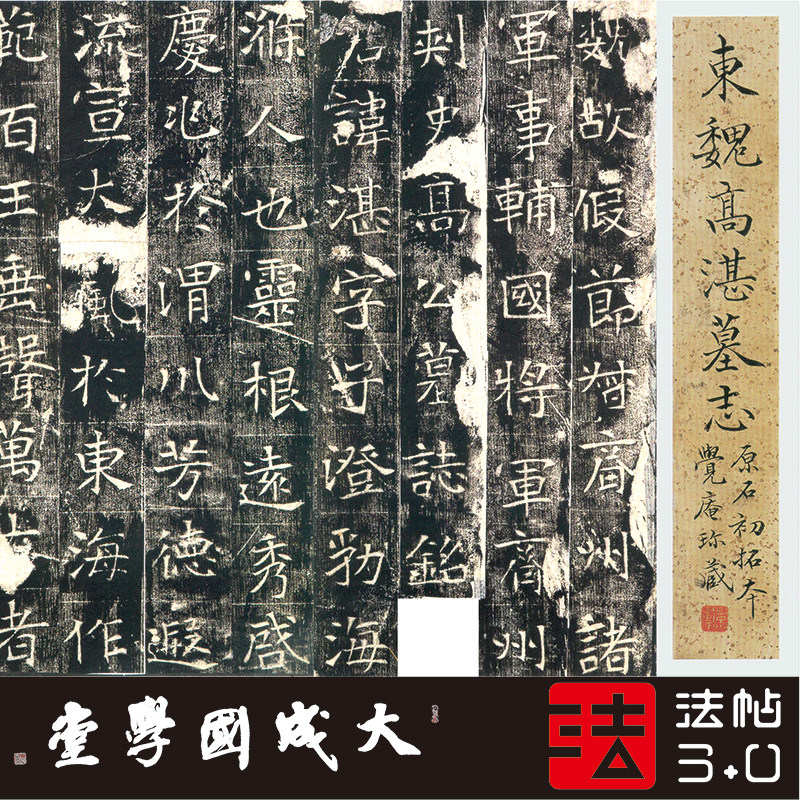 東魏髙湛墓志
原石初拓本
覺庵珍藏
魏故假節督齊州諸
軍事輔國將軍齊州
刾史髙公墓誌銘
君諱湛字子澄勃海
滌人也靈根遠秀啓
慶兆於渭川芳德遐
流宣大風於東海作
範百王垂聲萬古者
大成國學堂
法
法帖
3.0